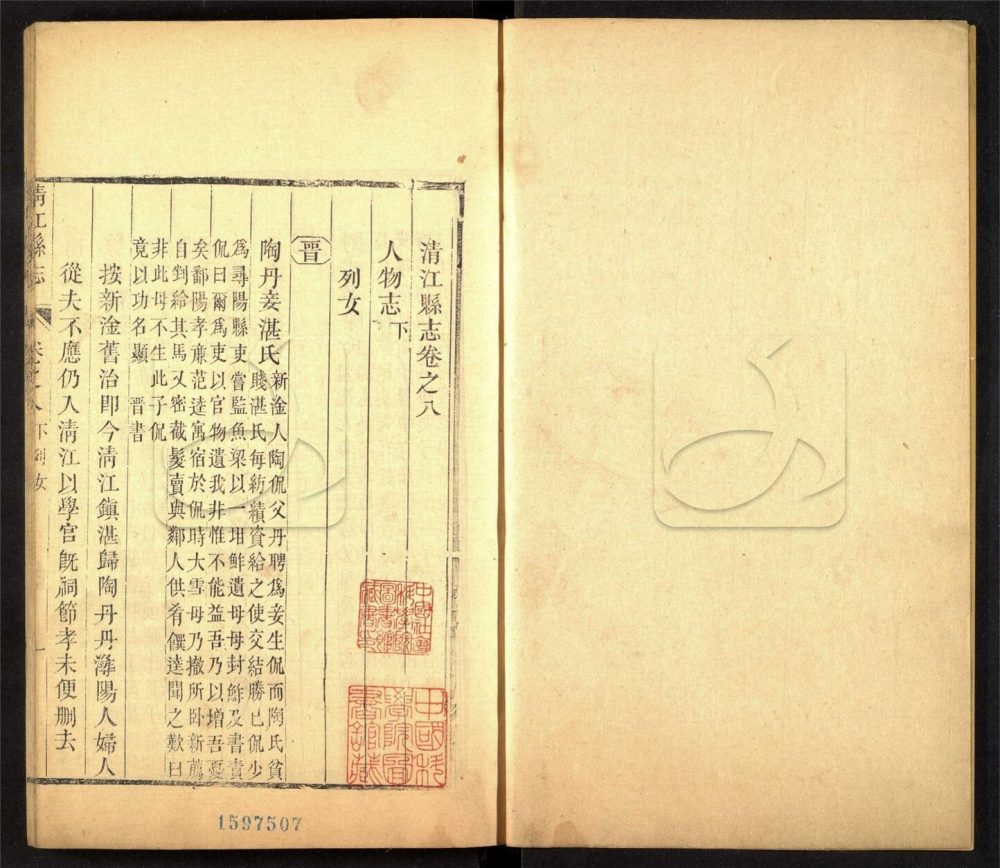 清江縣志卷之八
人物志下
列女
晋
陶丹妾湛氏新淦人陶侃父丹聘爲妾生侃而陶氏貧
賤湛氏每紡績資給之使交結勝己侃少
爲尋陽縣吏嘗監魚梁以一坩鮓遺母母封鮓及書責
侃曰爾爲吏以官物遺我非惟不能益吾乃以增吾憂
矣鄱陽孝廉范逵寓宿於侃時大雪母乃撤所卧新薦
自剉給其馬又密截髮賣與鄰人供肴饌逵聞之歎曰
非此母不生此子侃
竟以功名顯 晋書
按新淦舊治即今清江鎮湛歸陶丹丹潯陽人婦人
從夫不應仍入清江以學官既祠節孝未便刪去
清江縣志
卷之八下列女
一
中國社會
科學院
圖書館
藏書印
中國科
學院圖
書館藏
1597507